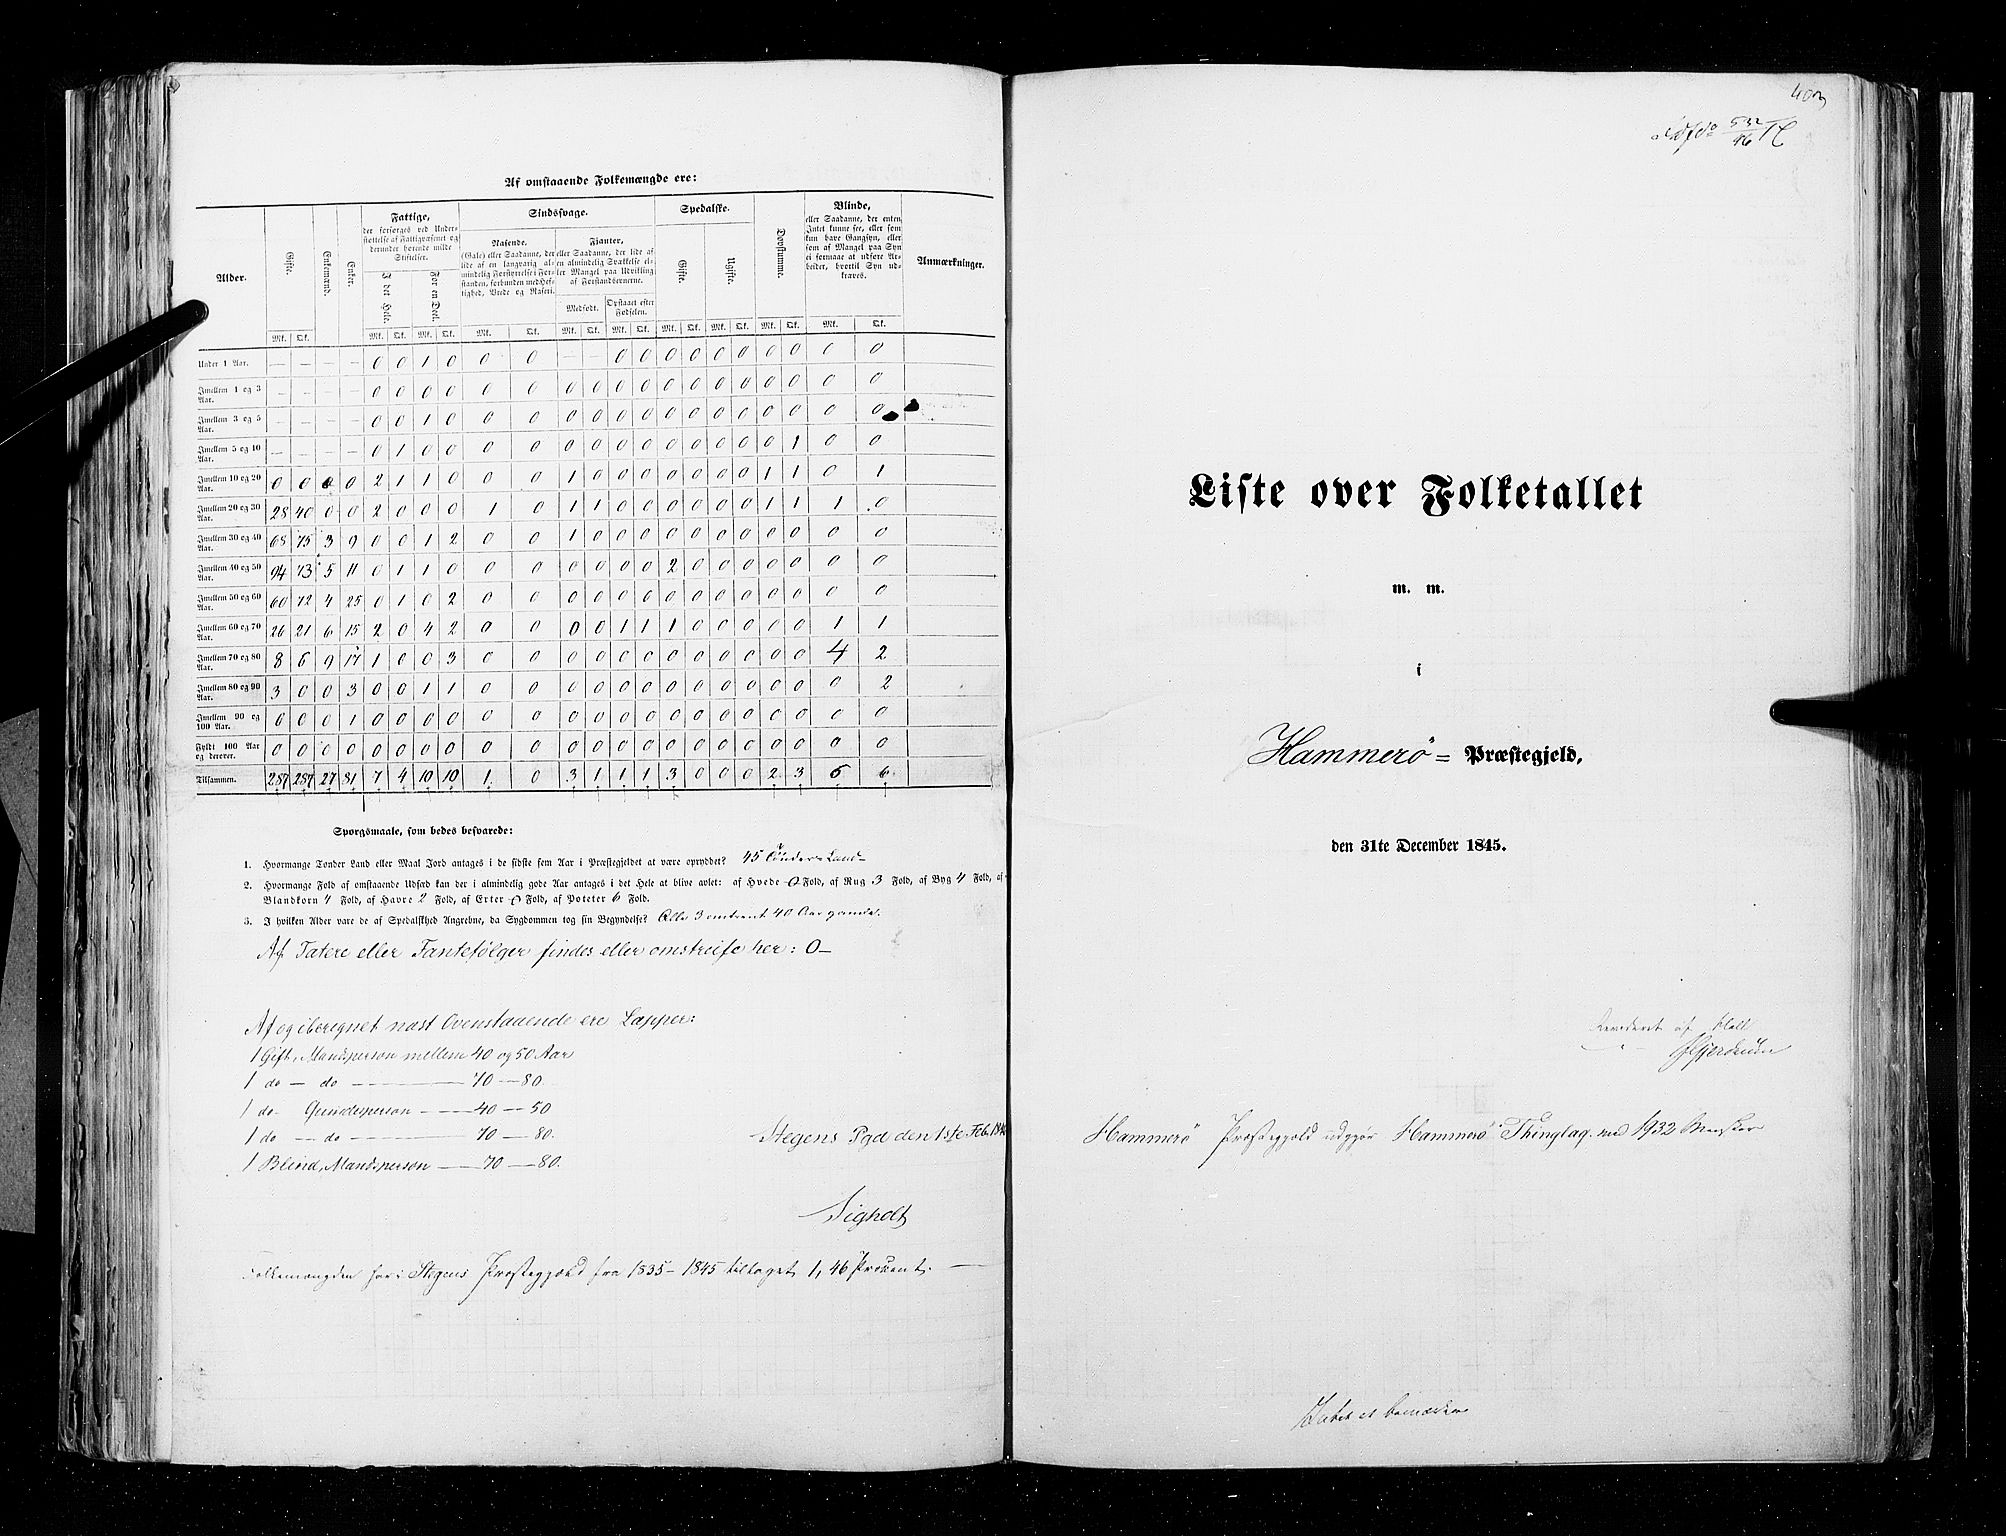 Af omstaaende Folkemængde ere:
Alder. Gifte. Enkemænd. Enker. Fattige, der forsørges ved Understøttelse af Fattigvæsenet og derunder hørende milde Stiftelser. Sindssvage. Spedalske. Døvstumme. Blinde, eller Saadanne, der enten Intet kunne see, eller som kun have Gangsyn, eller som af Mangel paa Syn ei formaae at udføre Arbeider, hvortil Syn udkræves. Anmærkninger.
I det Hele. For en Deel. Rasende, (Gale) eller Saadanne, der lide af en langvarig almindelig Forstyrrelse i Forstanden, forbunden med Heftighed, Vrede og Raseri. Fjanter, eller Saadanne, der lide af en almindelig Svækkelse eller Mangel paa Udvikling af Forstandsevnerne. Gifte. Ugifte.
Medfødt. Opstaaet efter Fødselen.
Mk. Qk. Mk. Qk. Mk. Qk. Mk. Qk. Mk. Qk. Mk. Qk. Mk. Qk. Mk. Qk. Mk. Qk. Mk. Qk.
Under 1 Aar. — — — — 0 0 1 0 0 0 — — 0 0 0 0 0 0 0 0 0 0
Imellem 1 og 3 Aar. — — — — 0 0 0 0 0 0 0 0 0 0 0 0 0 0 0 0 0 0
Imellem 3 og 5 Aar. — — — — 0 0 1 0 0 0 0 0 0 0 0 0 0 0 0 0 0 0
Imellem 5 og 10 Aar. — — — — 0 1 0 0 0 0 0 0 0 0 0 0 0 0 0 1 0 0
Imellem 10 og 20 Aar. 0 0 0 0 2 1 1 0 0 0 1 0 0 0 0 0 0 0 1 1 0 1
Imellem 20 og 30 Aar. 28 40 0 0 2 0 0 0 1 0 1 1 0 0 0 0 0 0 1 1 1 0
Imellem 30 og 40 Aar. 68 75 3 9 0 0 1 2 0 0 1 0 0 0 0 0 0 0 0 0 0 0
Imellem 40 og 50 Aar. 94 73 5 11 0 1 1 0 0 0 0 0 0 0 2 0 0 0 0 0 0 0
Imellem 50 og 60 Aar. 60 72 4 25 0 1 0 2 0 0 0 0 0 0 0 0 0 0 0 0 0 0
Imellem 60 og 70 Aar. 26 21 6 15 2 0 4 2 0 0 0 0 1 1 1 0 0 0 0 0 1 1
Imellem 70 og 80 Aar. 8 6 9 17 1 0 0 3 0 0 0 0 0 0 0 0 0 0 0 0 4 2
Imellem 80 og 90 Aar. 3 0 0 3 0 0 1 1 0 0 0 0 0 0 0 0 0 0 0 0 0 2
Imellem 90 og 100 Aar. 0 0 0 1 0 0 0 0 0 0 0 0 0 0 0 0 0 0 0 0 0 0
Fyldt 100 Aar og derover. 0 0 0 0 0 0 0 0 0 0 0 0 0 0 0 0 0 0 0 0 0 0
Tilsammen. 287 287 27 81 7 4 10 10 1 0 3 1 1 1 3 0 0 0 2 3 6 6
Spørgsmaale, som bedes besvarede:
1. Hvormange Tønder Land eller Maal Jord antages i de sidste fem Aar i Præstegjeldet at være opryddet? 45 Tønder Land
2. Hvormange Fold af omstaaende Udsæd kan der i almindelig gode Aar antages i det Hele at blive avlet: af Hvede 0 Fold, af Rug 3 Fold, af Byg 4 Fold, af
Blandkorn 4 Fold, af Havre 2 Fold, af Erter 0 Fold, af Poteter 6 Fold.
3. I hvilken Alder vare de af Spedalskhed Angrebne, da Sygdommen tog sin Begyndelse? Alle 3 omtrent 40 Aar gamle.
Af Tatere eller Fantefølger findes eller omstreife her: 0—
Af og iberegnet næst Ovenstaaende ere Lapper:
1 Gift, Mandsperson mellem 40 og 50 Aar
1 do — do — 70 — 80
1 do — Qvindeperson — 40 — 50
1 do — do — 70 — 80.
1 Blind, Mandsperson — 70 — 80.
Stegens Pgd den 1ste Feb. 184
Sigholt
Folkemængden har i Stegens Præstegjeld fra 1835–1845 tiltaget 1,46 Procent. —
403
532/46
Liste over Folketallet
m. m.
i
Hammerö = Præstegjeld,
den 31te December 1845.
Revideret af
Gjerdrum
Hammerö Præstegjeld udgjør Hammerö Thinglag med 1932 Mennesker
Intet at bemærke